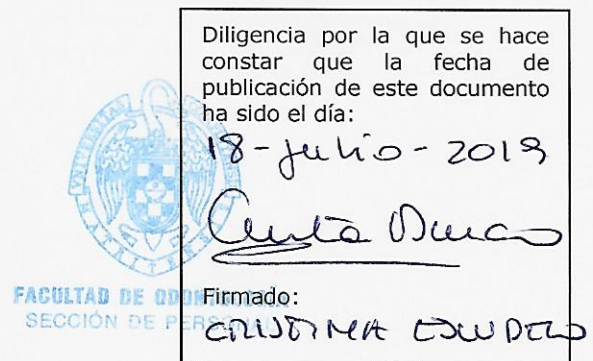 Diligencia por la que se hace
constar que la fecha de
publicación de este documento
ha sido el día:
18-julio-2019
Firmado:
CRISTINA ESCUDERO
FACULTAD DE ODON
SECCIÓN DE PERSONAL